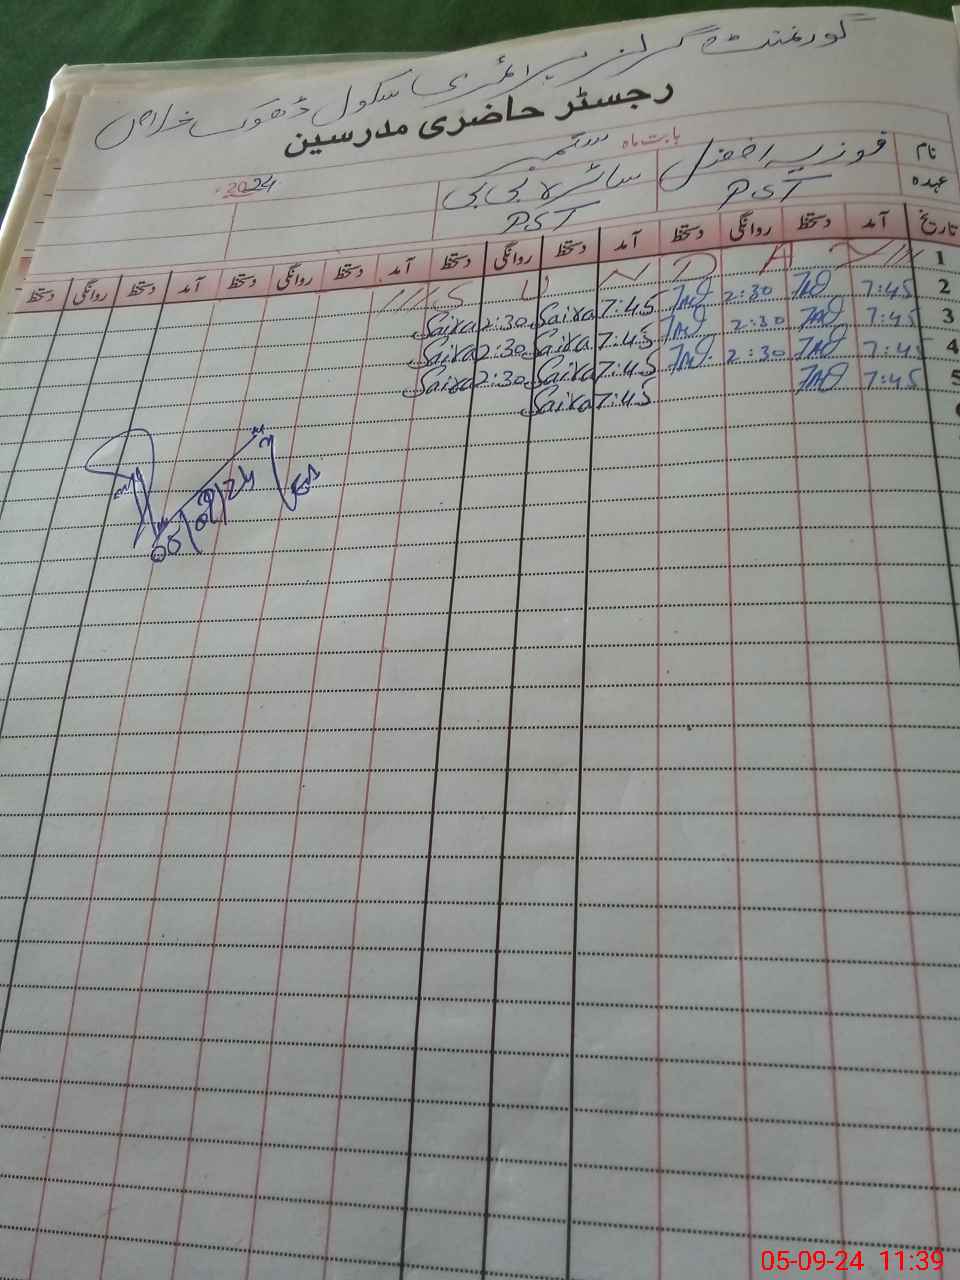 گورنمنٹ گرلز پرائمری سکول ڈھوک خراص
رجسٹر حاضری مدرسین
بابت ماہ ستمبر 2024
نام فوزیہ افضل سائرہ بی بی
عہدہ PST PST
تاریخ آمد دستخط روانگی دستخط آمد دستخط روانگی دستخط آمد دستخط روانگی دستخط آمد دستخط روانگی دستخط
1 S U N D A Y
2 7:45 2:30 7:45 Saira 2:30 Saira
3 7:45 2:30 7:45 Saira 2:30 Saira
4 7:45 2:30 7:45 Saira 2:30 Saira
5 7:45 7:45 Saira
05/09/24
05-09-24 11:39